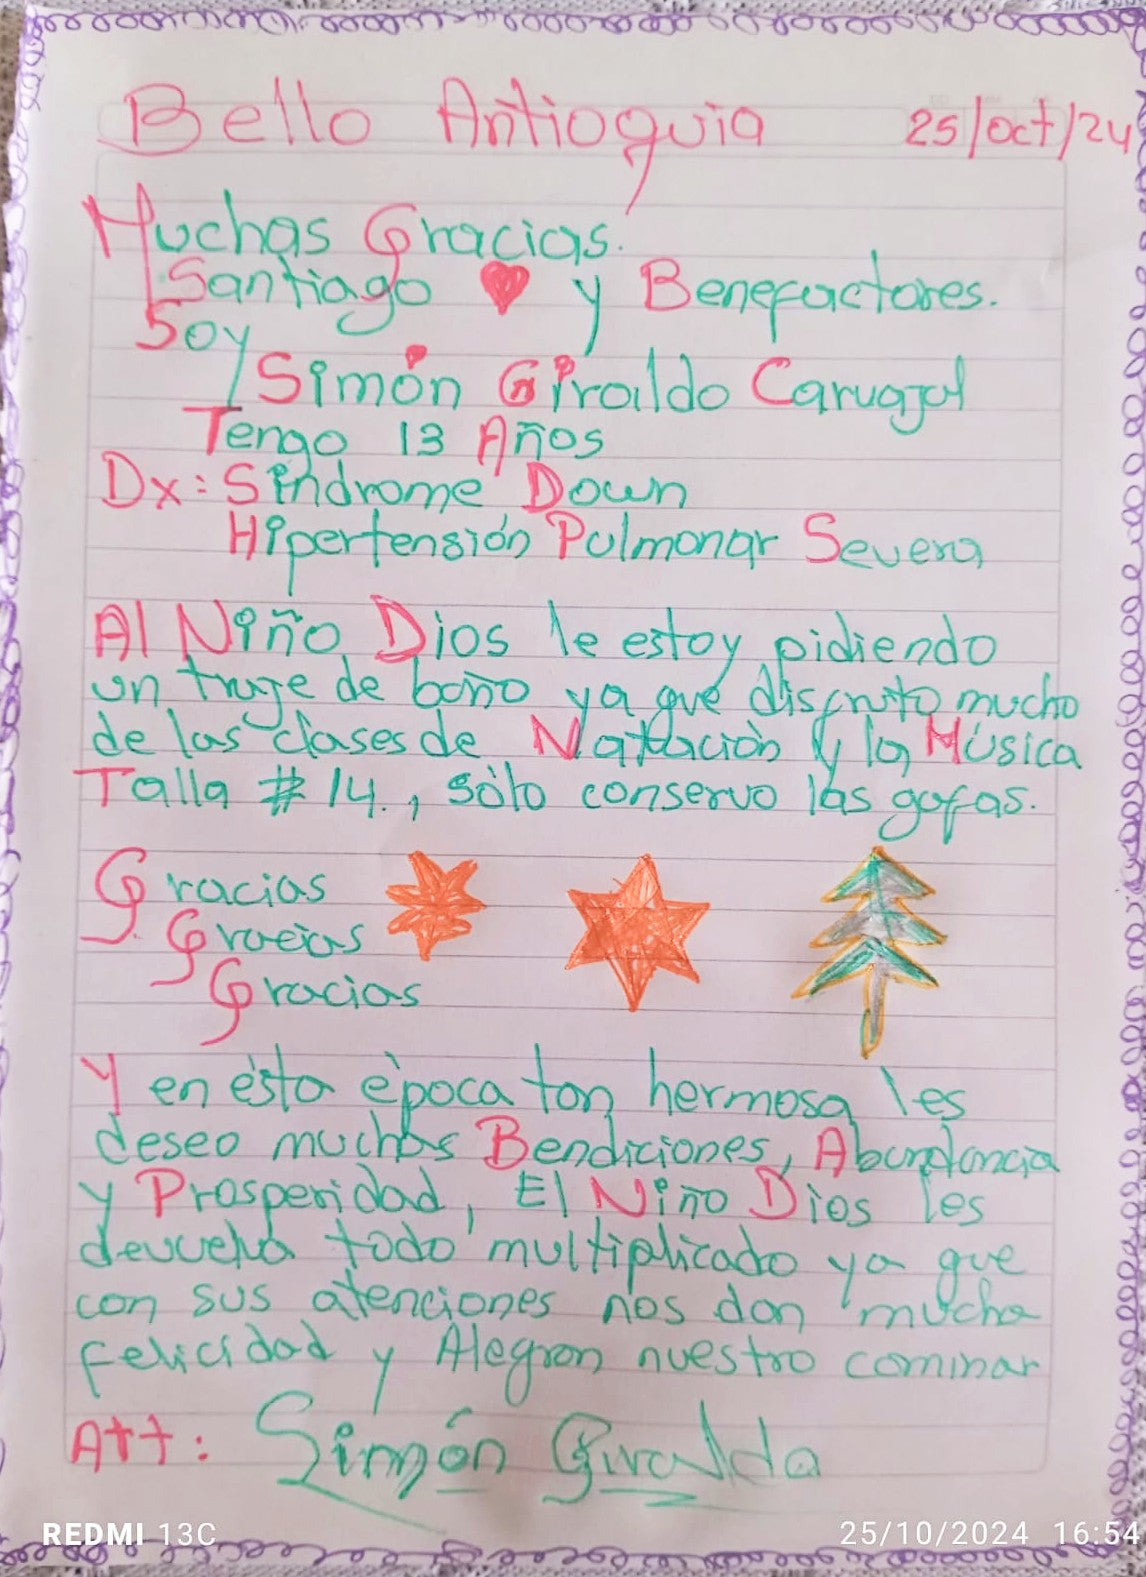 Bello Antioquia 25/oct/24
Muchas Gracias.
Santiago y Benefactores.
Soy
Simón Giraldo Carvajal
Tengo 13 Años
Dx: Síndrome Down
Hipertensión Pulmonar Severa
Al Niño Dios le estoy pidiendo
un traje de baño ya qué disfruto mucho
de las clases de Natación y la Música
Talla # 14., sólo conservo las gafas.
Gracias
Gracias
Gracias
Y en ésta época tan hermosa les
deseo muchas Bendiciones, Abundancia
y Prosperidad, El Niño Dios les
devuelva todo multiplicado ya que
con sus atenciones nos dan mucha
felicidad y Alegran nuestro caminar
Att: Simón Giraldo
REDMI 13C
25/10/2024 16:54